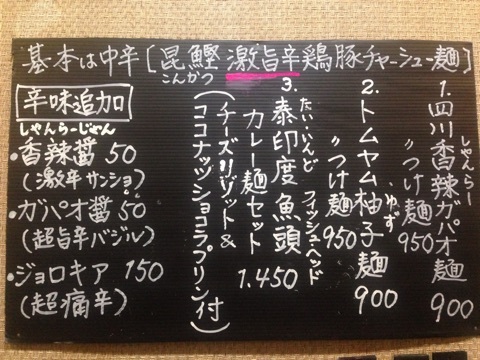 基本は中辛[昆鰹激旨辛鶏豚チャーシュー麺]
こんかつ
1.四川香辣ガパオ麺 900
しゃんらー
〃つけ麺 950
2.トムヤム柚子麺 900
ゆず
〃つけ麺 950
3.泰印度魚頭
たいいんど フィッシュヘッド
カレー麺セット 1.450
(チーズリゾット&
ココナッツショコラプリン付)
辛味追加
しゃんらーじゃん
・香辣醤 50
(激辛サンショ)
・ガパオ醤 50
(超旨辛バジル)
・ジョロキア 150
(超痛辛)